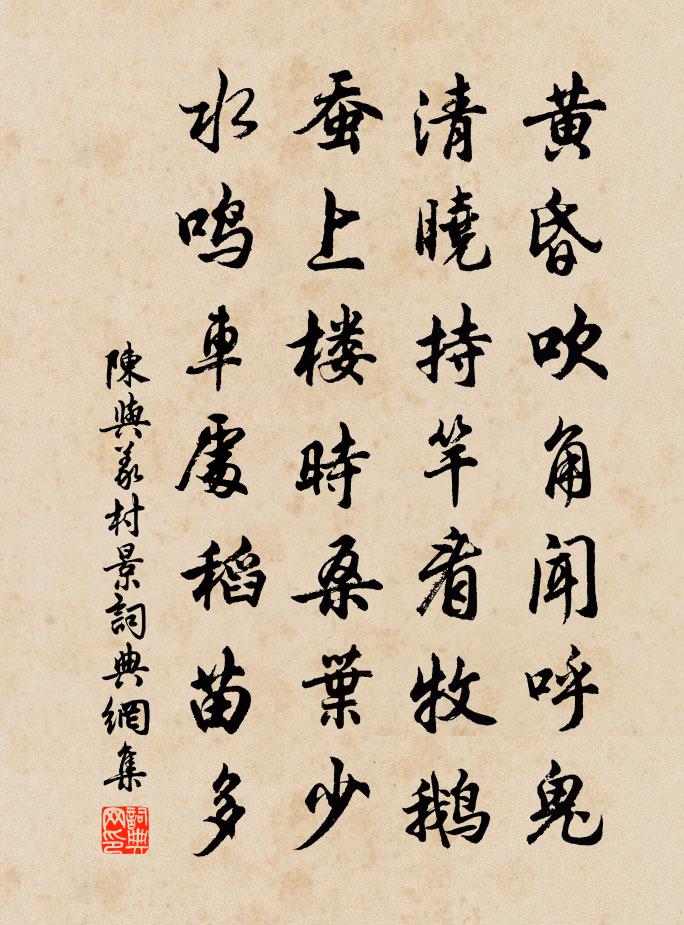 黄昏吹角闻呼鬼
清曉持竿看牧鹅
蚕上楼時桑葉少
水鸣車處稻苗多
陳與義村景詞典網集
詞典网印